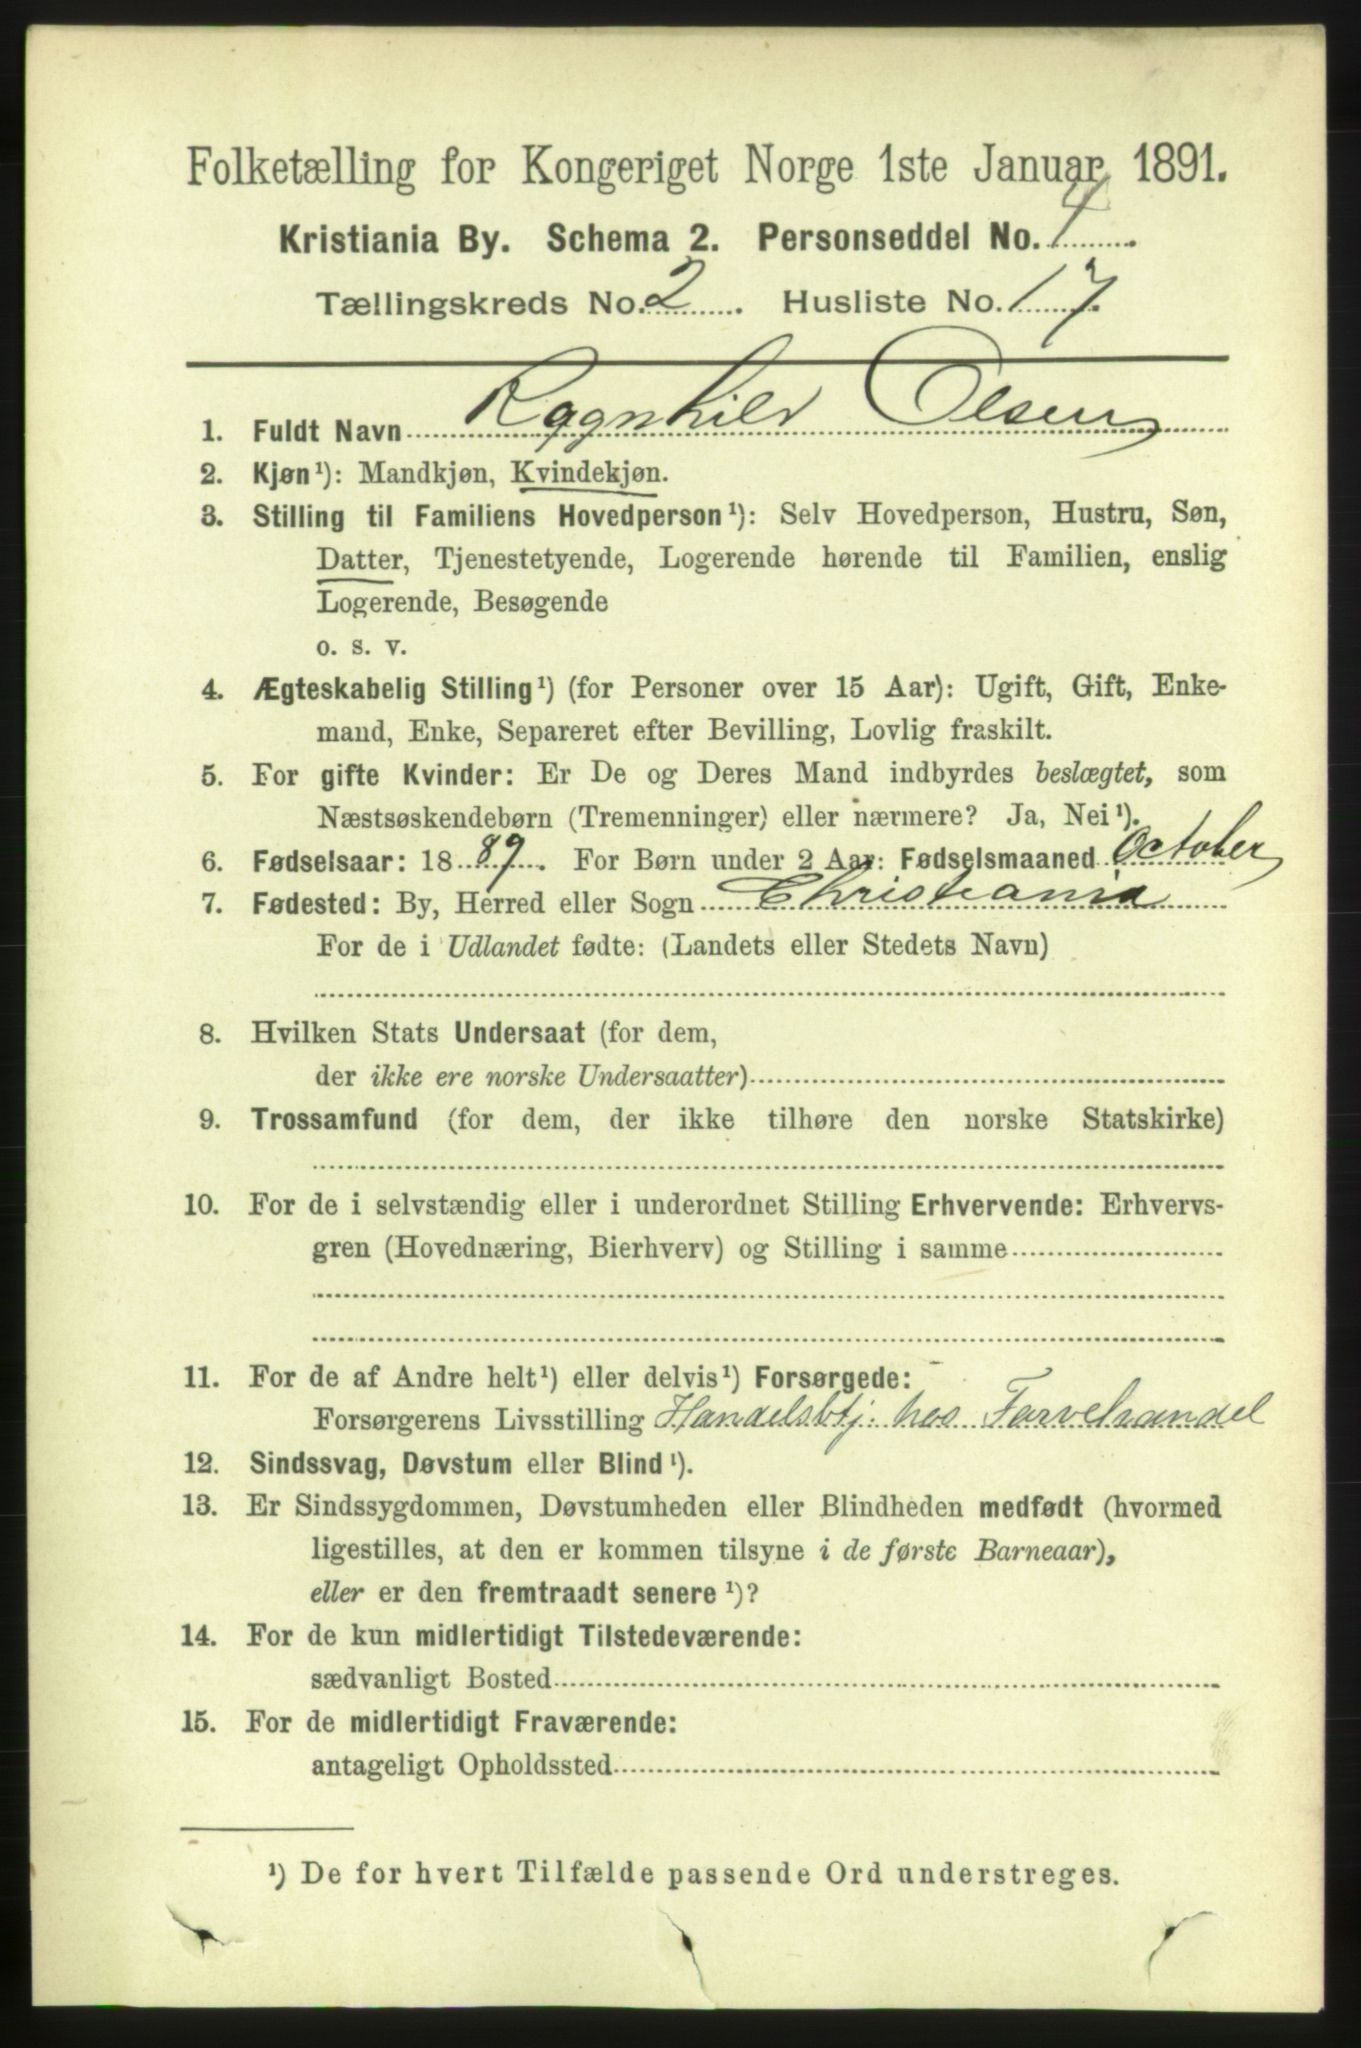 Folketælling for Kongeriget Norge 1ste Januar 1891.
Kristiania By. Schema 2. Personseddel No. 4.
Tællingskreds No. 2. Husliste No. 17.
1. Fuldt Navn Ragnhild Olsen
2. Kjøn¹): Mandkjøn, Kvindekjøn.
3. Stilling til Familiens Hovedperson¹): Selv Hovedperson, Hustru, Søn,
Datter, Tjenestetyende, Logerende hørende til Familien, enslig
Logerende, Besøgende
o. s. v.
4. Ægteskabelig Stilling¹) (for Personer over 15 Aar): Ugift, Gift, Enke-
mand, Enke, Separeret efter Bevilling, Lovlig fraskilt.
5. For gifte Kvinder: Er De og Deres Mand indbyrdes beslægtet, som
Næstsøskendebørn (Tremenninger) eller nærmere? Ja, Nei¹).
6. Fødselsaar: 1889. For Børn under 2 Aar: Fødselsmaaned October
7. Fødested: By, Herred eller Sogn Christiania
For de i Udlandet fødte: (Landets eller Stedets Navn)
8. Hvilken Stats Undersaat (for dem,
der ikke ere norske Undersaatter)
9. Trossamfund (for dem, der ikke tilhøre den norske Statskirke)
10. For de i selvstændig eller i underordnet Stilling Erhvervende: Erhvervs-
gren (Hovednæring, Bierhverv) og Stilling i samme
11. For de af Andre helt¹) eller delvis¹) Forsørgede:
Forsørgerens Livsstilling Handelsbtj. hos Farvehandel
12. Sindssvag, Døvstum eller Blind¹).
13. Er Sindssygdommen, Døvstumheden eller Blindheden medfødt (hvormed
ligestilles, at den er kommen tilsyne i de første Barneaar),
eller er den fremtraadt senere¹)?
14. For de kun midlertidigt Tilstedeværende:
sædvanligt Bosted
15. For de midlertidigt Fraværende:
antageligt Opholdssted
¹) De for hvert Tilfælde passende Ord understreges.